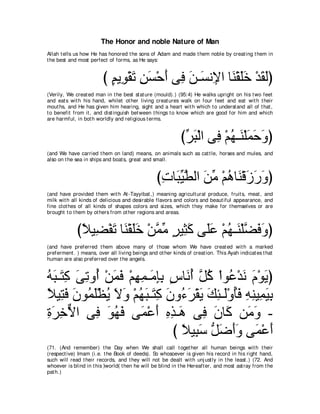 The Honor and noble Nature of Man
Allah tells us how He has honored the sons of Adam and made them noble by creating them in
the best and most perfect of forms, as He says:
(لَقَدْ خَلَقْنَا الإِنسَـنَ فِى أَحْسَنِ تَقْوِيمٍ )
(Verily, We created man in the best stature (mould).) (95:4) He walks upright on his two feet
and eats with his hand, whilst other living creatures walk on four feet and eat with their
mouths, and He has given him hearing, sight and a heart with which to understand all of that,
to benefit from it, and distinguish between things to know which are good for him and which
are harmful, in both worldly and religious terms.
(وَحَمَلْنَـهُمْ فِى الْبَرِّ)
(and We have carried them on land) means, on animals such as cattle, horses and mules, and
also on the sea in ships and boats, great and small.
(وَرَزَقْنَاهُمْ مِّنَ الطَّيِّبَاتِ)
(and have provided them with At-Tayyibat,) meaning agricultural produce, fruits, meat, and
milk with all kinds of delicious and desirable flavors and colors and beautiful appearance, and
fine clothes of all kinds of shapes colors and sizes, which they make for themselves or are
brought to them by others from other regions and areas.
(وَفَضَّلْنَـهُمْ عَلَى كَثِيرٍ مِّمَّنْ خَلَقْنَا تَفْضِيلاً)
(and have preferred them above many of those whom We have created with a marked
preferment. ) means, over all living beings and other kinds of creation. This Ayah indicates that
human are also preferred over the angels.
(يَوْمَ نَدْعُوا كُلَّ أُنَاسٍ بِإِمَـمِهِمْ فَمَنْ أُوتِىَ كِتَـبَهُ
بِيَمِينِهِ فَأُوْلَـئِكَ يَقْرَءُونَ كِتَـبَهُمْ وَلاَ يُظْلَمُونَ فَتِيلاً
- وَمَن كَانَ فِى هَـذِهِ أَعْمَى فَهُوَ فِى الاٌّخِرَةِ
أَعْمَى وَأَضَلُّ سَبِيلاً )
(71. (And remember) the Day when We shall call together all human beings with their
(respective) Imam (i.e. the Book of deeds). So whosoever is given his record in his right hand,
such will read their records, and they will not be dealt with unjustly in the least.) (72. And
whoever is blind in this )world( then he will be blind in the Hereafter, and most astray from the
path.)